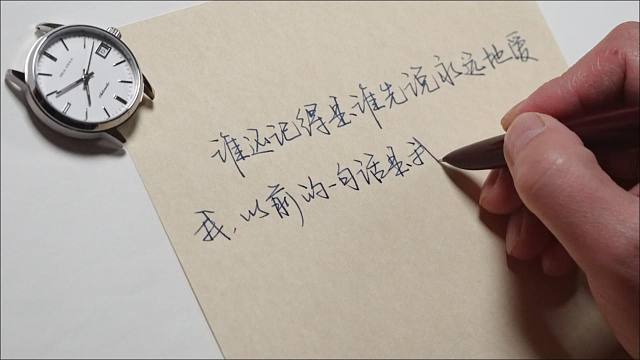 谁还记得是谁先说永远地爱
我,以前的一句话是我